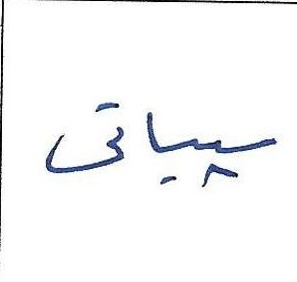 سپیاتی